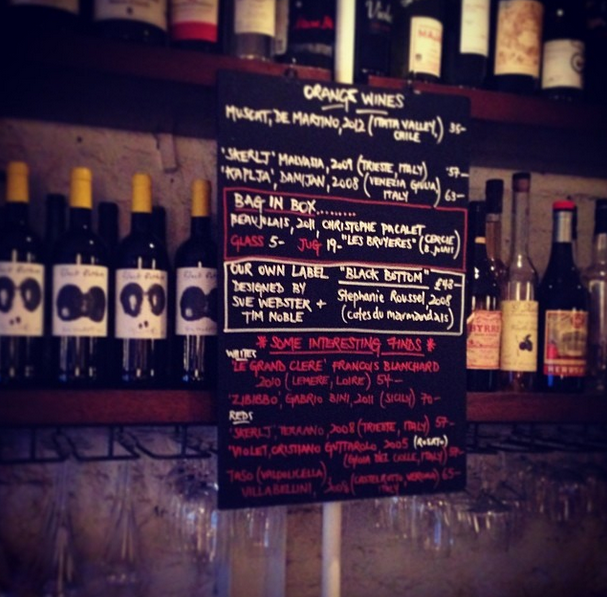 ORANGE WINES
MUSCAT, DE MARTINO, 2012 (ITATA VALLEY, 36-
CHILE
'SKERLJ' MALVASIA, 2009 (TRIESTE, ITALY) 57-
'KAPLJA', DAMIJAN, 2008 (VENEZIA GIULIA 63-
ITALY
BAG IN BOX........
BEAUJOLAIS, 2011, CHRISTOPHE PACALET
GLASS 5- JUG 19- "LES BRUYERES" (CERCIE
OUR OWN LABEL "BLACK BOTTOM" £43-
DESIGNED BY Stephanie Roussel 2008
SUE WEBSTER + (cotes du marmandais)
TIM NOBLE
* SOME INTERESTING FINDS *
WHITES
'LE GRAND CLERE' FRANCOIS BLANCHARD
2010 (LEMERE, LOIRE) 54-
'ZIBIBBO', GABRIO BINI, 2011 (SICILY) 70-
REDS
'SKERLJ', TERRANO, 2008 (TRIESTE, ITALY) 57-
'VIOLET, CRISTIANO GUTTAROLO 2005 (ROSATO)
(GIOIA DEL COLLE, ITALY)
TASO (VALPOLICELLA) (CASTELROTTO, VERONA) 65-
VILLABELLINI, 2008 ITALY